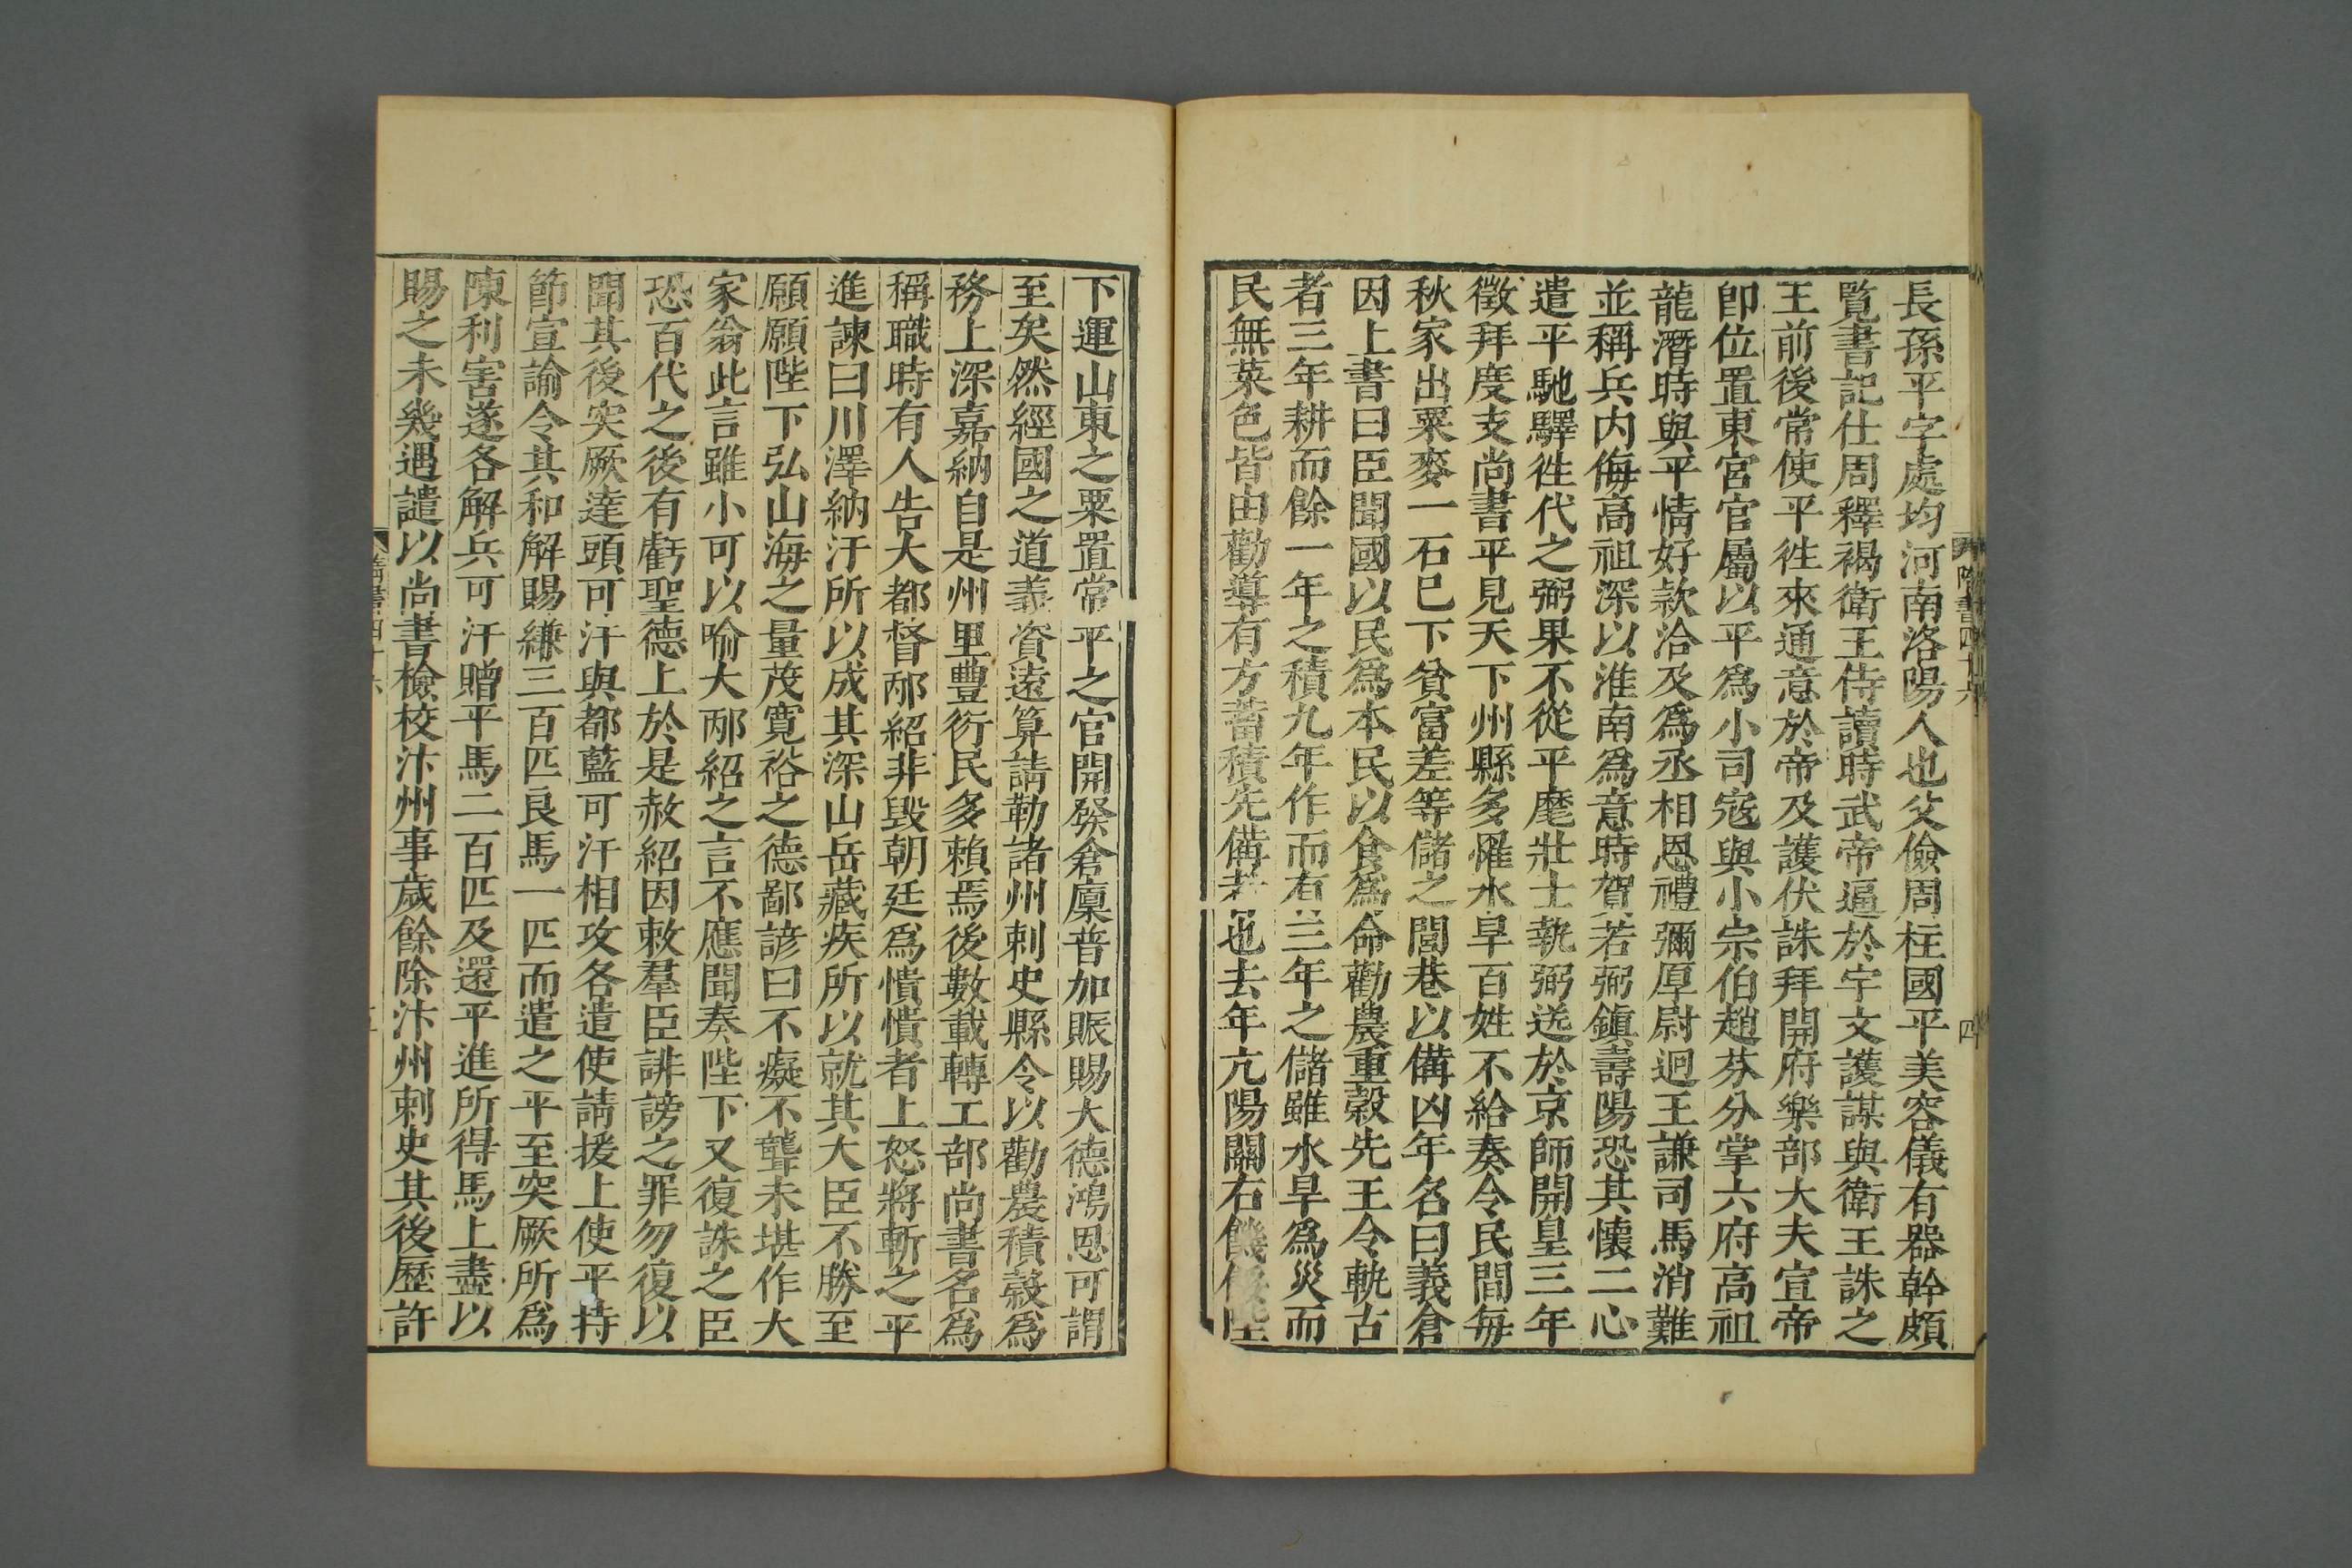 長孫平字處均河南洛陽人也父儉周柱國平美容儀有器幹頗
覽書記仕周釋褐衛王侍讀時武帝逼於宇文護謀與衛王誅之
王前後常使平徃來通意於帝及護伏誅拜開府樂部大夫宣帝
卽位置東宮官屬以平爲小司寇與小宗伯趙芬分掌六府高祖
龍潛時與平情好款洽及爲丞相恩禮彌厚尉迥王謙司馬消難
並稱兵内侮高祖深以淮南爲意時賀若弼鎮壽陽恐其懷二心
遣平馳驛徃代之弼果不從平麾壯士執弼送於京師開皇三年
徵拜度支尚書平見天下州縣多罹水旱百姓不給奏令民間每
秋家出粟麥一石巳下貧富差等儲之閭巷以備凶年名曰義倉
因上書曰臣聞國以民爲本民以食爲命勸農重穀先王令軌古
者三年耕而餘一年之積九年作而有三年之儲雖水旱爲災而
民無菜色皆由勸導有方蓄積先備者也去年亢陽關右饑餒陛
隋書四十六
四
下運山東之粟置常平之官開發倉廪普加賑賜大德鴻恩可謂
至矣然經國之道義資遠算請勒諸州刺史縣令以勸農積穀爲
務上深嘉納自是州里豐衍民多賴焉後數載轉工部尚書名爲
稱職時有人告大都督邴紹非毀朝廷爲憒憒者上怒將斬之平
進諫曰川澤納汙所以成其深山岳藏疾所以就其大臣不勝至
願願陛下弘山海之量茂寬裕之德鄙諺曰不癡不聾未堪作大
家翁此言雖小可以喻大邴紹之言不應聞奏陛下又復誅之臣
恐百代之後有虧聖德上於是赦紹因敕羣臣誹謗之罪勿復以
聞其後突厥達頭可汗與都藍可汗相攻各遣使請援上使平持
節宣諭令其和解賜縑三百匹良馬一匹而遣之平至突厥所爲
陳利害遂各解兵可汗贈平馬二百匹及還平進所得馬上盡以
賜之未幾遇譴以尚書檢校汴州事歲餘除汴州刺史其後歷許